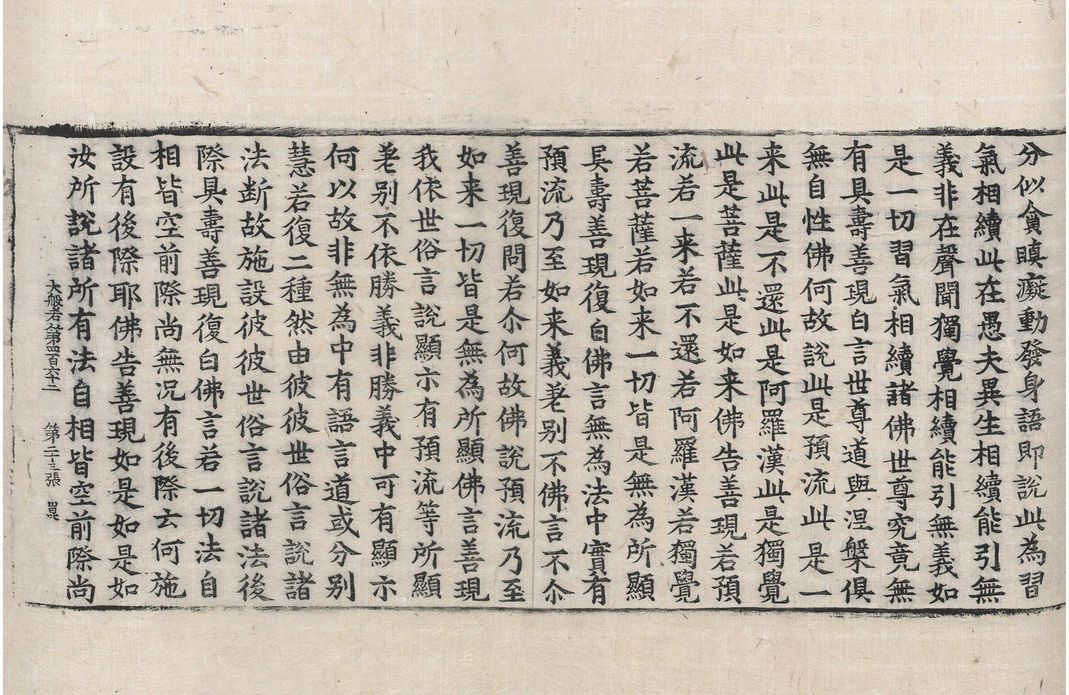 分似貪瞋癡動發身語即說此為習
氣相續此在愚夫異生相續能引無
義非在聲聞獨覺相續能引無義如
是一切習氣相續諸佛世尊究竟無
有具壽善現白言世尊道與涅槃俱
無自性佛何故說此是預流此是一
来此是不還此是阿羅漢此是獨覺
此是菩薩此是如来佛告善現若預
流若一来若不還若阿羅漢若獨覺
若菩薩若如来一切皆是無為所顯
具壽善現復白佛言無為法中實有
預流乃至如来義差别不佛言不尒
善現復問若尒何故佛說預流乃至
如来一切皆是無為所顯佛言善現
我依世俗言說顯示有預流等所顯
差别不依勝義非勝義中可有顯示
何以故非無為中有語言道或分别
慧若復二種然由彼彼世俗言說諸
法断故施設彼彼世俗言說諸法後
際具壽善現復白佛言若一切法自
相皆空前際尚無况有後際云何施
設有後際耶佛告善現如是如是如
汝所說諸所有法自相皆空前際尚
大般若第四百六十二 第二十三張 崑